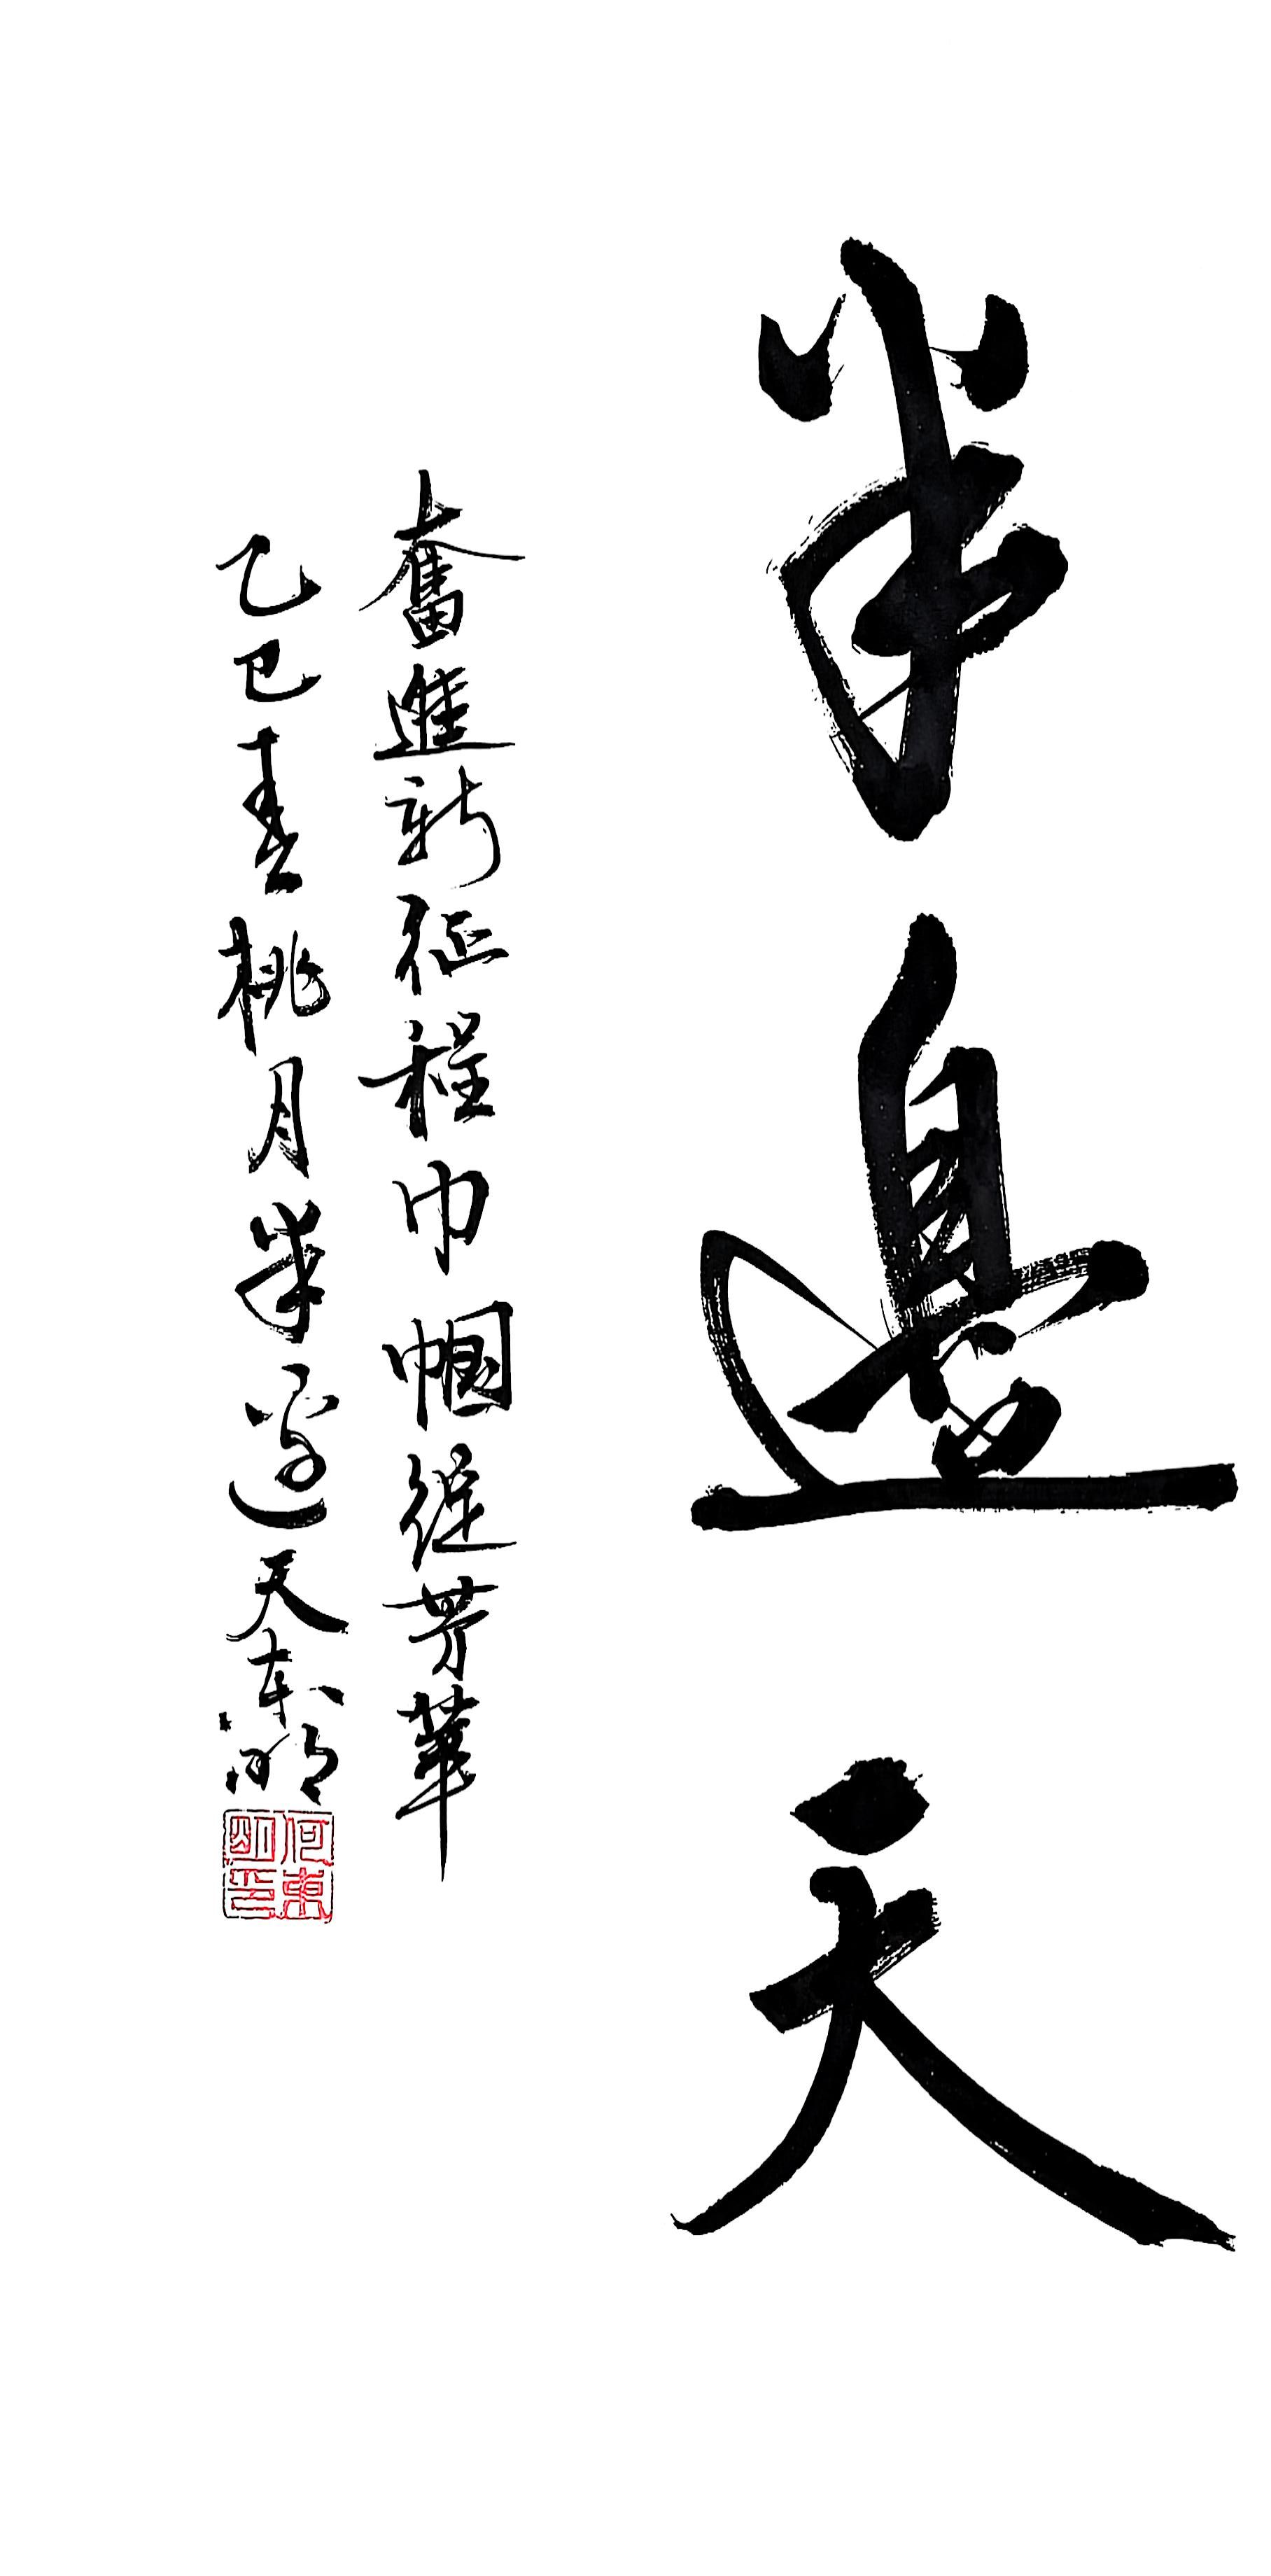 半邊天
奮進新征程巾幗綻芳華
乙巳春桃月半邊天东明
何東明印